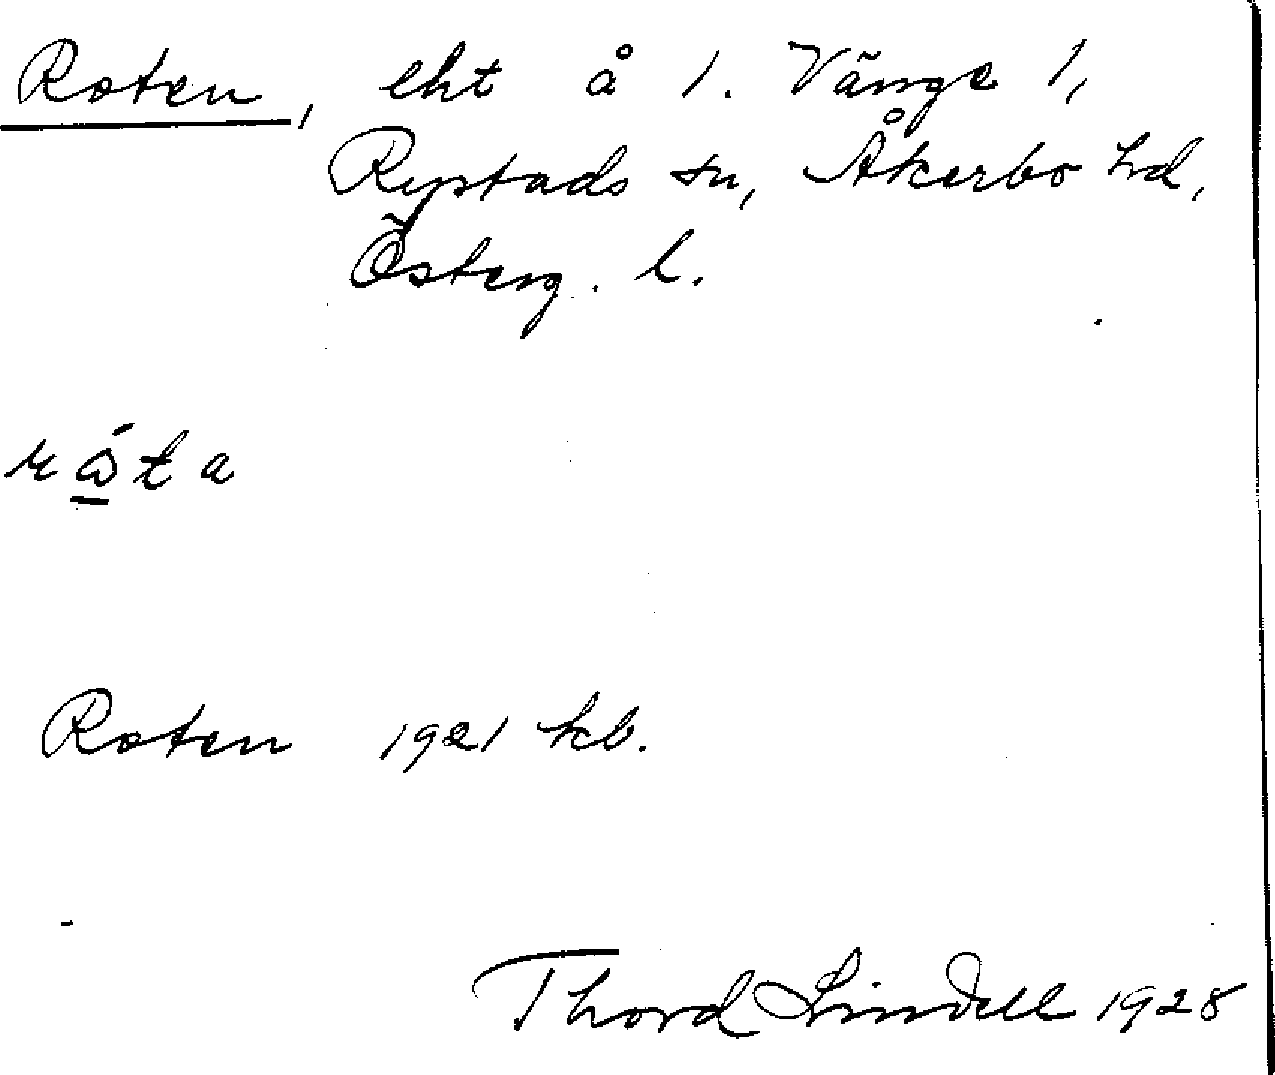 Roten, eht å 1. Vänge 1,
Rystads sn, Åkerbo hd,
Österg. l.
Roten 1921 kb.
Thord Lindell 1928